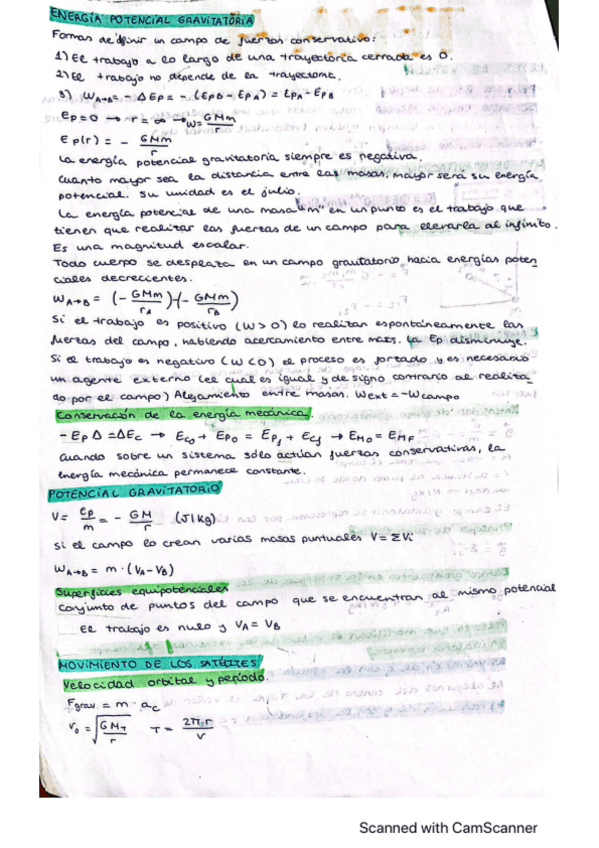 ENERGÍA POTENCIAL GRAVITATORIA
Formas de definir un campo de fuerzas conservativo:
1) El trabajo a lo largo de una trayectoria cerrada es 0.
2) El trabajo no depende de la trayectoria.
3) W A→B = - ΔEp = - (EpB - EpA) = EpA - EpB
Ep=0 → r = ∞ → W= GMm/r
Ep(r) = - GMm/r
La energía potencial gravitatoria siempre es negativa.
Cuanto mayor sea la distancia entre las masas, mayor será su energía
potencial. Su unidad es el julio.
La energía potencial de una masa "m" en un punto es el trabajo que
tienen que realizar las fuerzas de un campo para llevarla al infinito.
Es una magnitud escalar.
Todo cuerpo se desplaza en un campo gravitatorio, hacia energías poten
ciales decrecientes.
W A→B = (- GMm/rA) - (- GMm/rB)
Si el trabajo es positivo (W > 0) lo realitan espontáneamente las
fuerzas del campo, habiendo acercamiento entre mas. La Ep disminuye.
Si el trabajo es negativo (W < 0) el proceso es forzado y es necesario
un agente externo (el cual es igual y de signo contrario al realiza-
do por el campo) Alejamiento entre masas. Wext = -Wcampo
Conservación de la energía mecánica.
- Ep Δ = ΔEc → Eco + Epo = Epf + Ecf → EMo = EMF
Cuando sobre un sistema sólo actúan fuerzas conservativas, la
energía mecánica permanece constante.
POTENCIAL GRAVITATORIO
V = Ep/m = - GM/r (J/Kg)
Si el campo lo crean varias masas puntuales V = ΣVi
W A→B = m · (VA - VB)
Superficies equipotenciales
Conjunto de puntos del campo que se encuentran al mismo potencial
El trabajo es nulo y VA = VB
MOVIMIENTO DE LOS SATÉLITES
Velocidad orbital y período.
Fgrav = m · ac
vo = √(GMT/r) T = 2π·r/v
Scanned with CamScanner